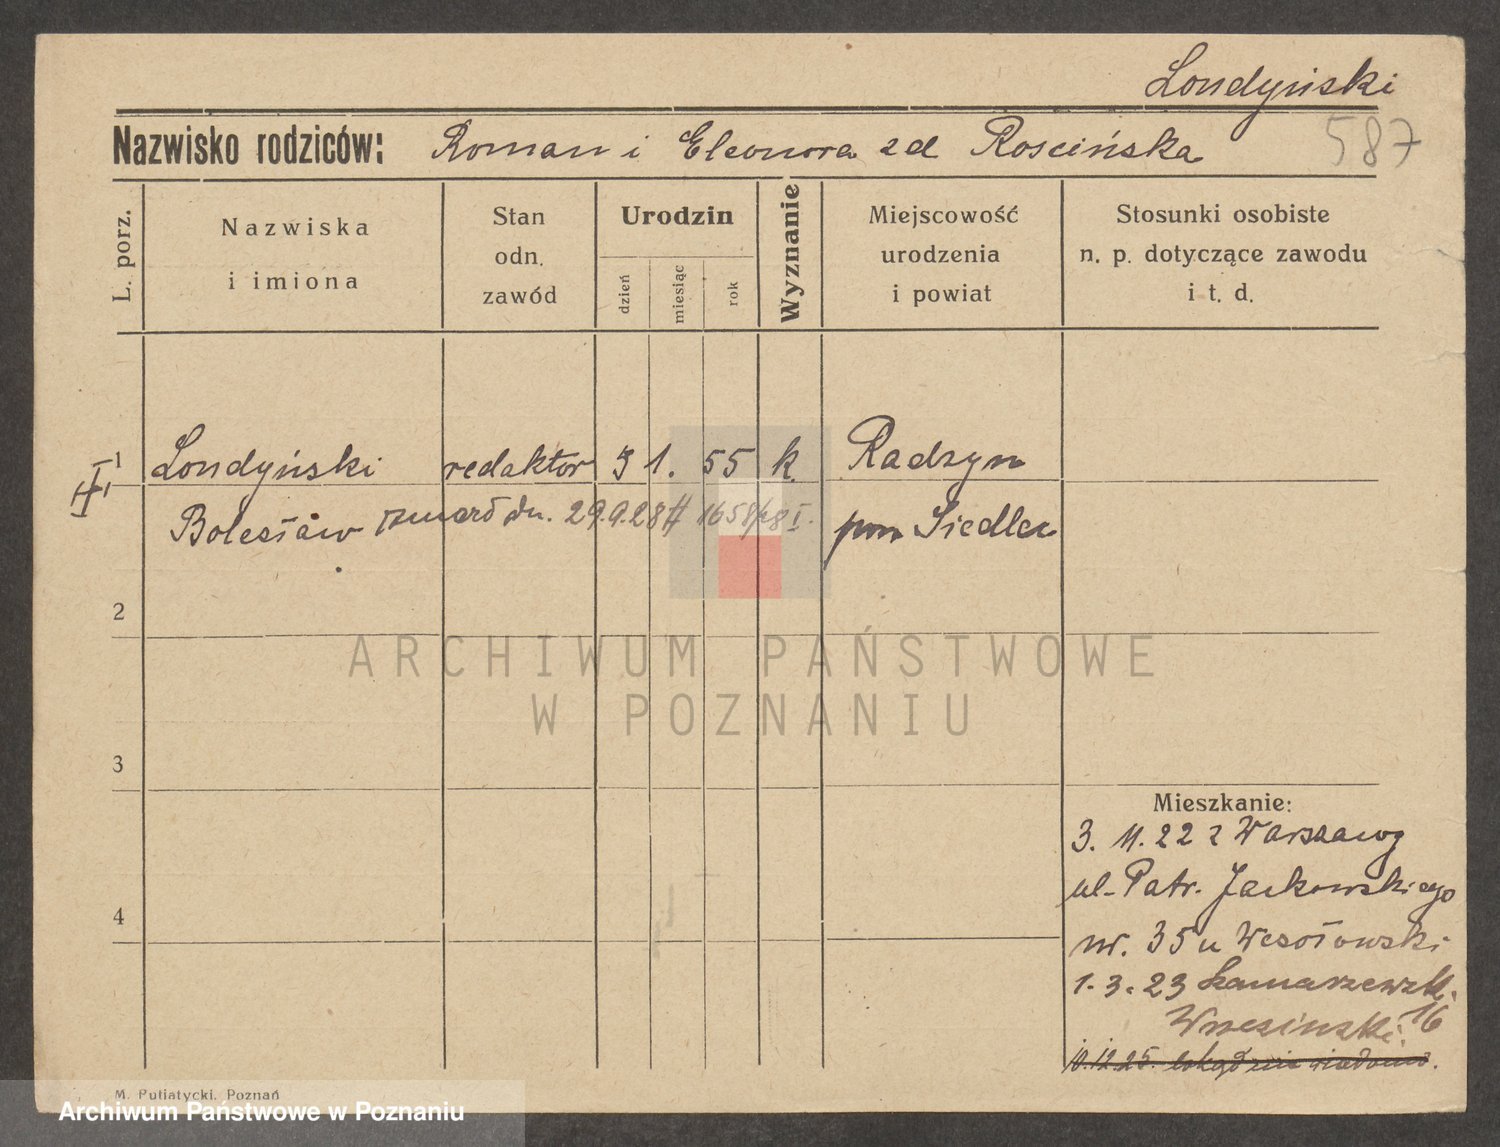 Londyński
587
Nazwisko rodziców: Roman i Eleonora zd Rościńska
L. porz.
Nazwiska
i imiona
Stan
odn.
zawód
Urodzin
dzień
miesiąc
rok
Wyznanie
Miejscowość
urodzenia
i powiat
Stosunki osobiste
n. p. dotyczące zawodu
i t. d.
1 Londyński redaktor 1. 55 k. Radzyn
Bolesław zmarł dn. 29.9.28 pow Siedlce
2
ARCHIWUM PAŃSTWOWE
W POZNANIU
3
Mieszkanie:
3. 11. 22 z Warszawy
ul. Patr. Jackowskiego
4
nr. 35 u Wesołowski
1. 3. 23
16
10.12.25.
M. Putiatycki, Poznań
Archiwum Państwowe w Poznaniu